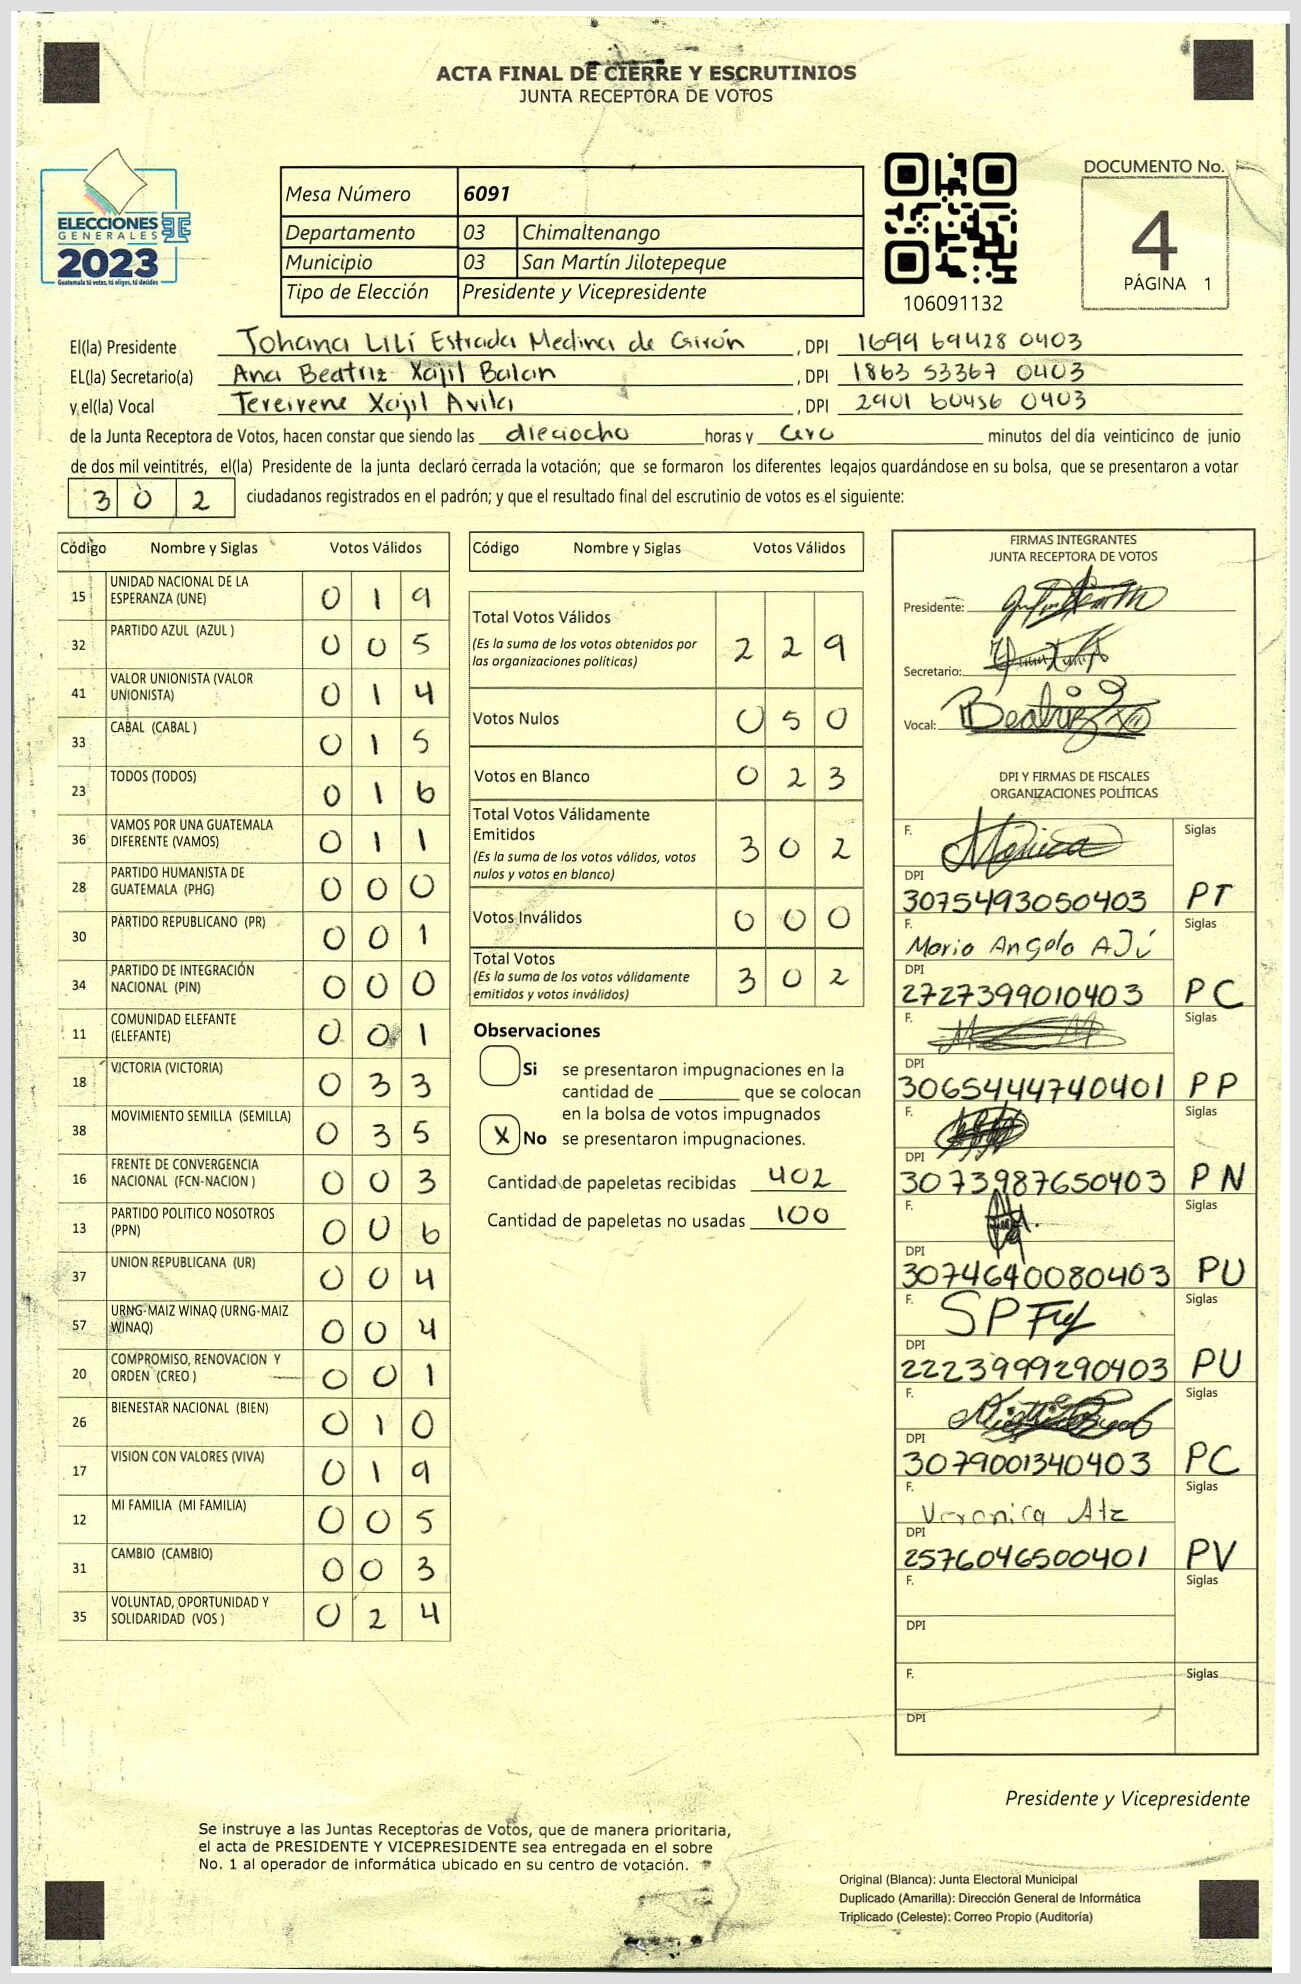 ACTA FINAL DE CIERRE Y ESCRUTINIOS
JUNTA RECEPTORA DE VOTOS
ELECCIONES
GENERALES
2023
Guatemala tú votas, tú eliges, tú decides
Mesa Número 6091
Departamento 03 Chimaltenango
Municipio 03 San Martín Jilotepeque
Tipo de Elección Presidente y Vicepresidente
106091132
DOCUMENTO No.
4
PÁGINA 1
El(la) Presidente Johana Lilí Estrada Medina de Girón , DPI 1699 69428 0403
EL(la) Secretario(a) Ana Beatriz Xajil Balan , DPI 1863 53367 0403
y el(la) Vocal Tereirene Xajil Avila , DPI 2901 60456 0403
de la Junta Receptora de Votos, hacen constar que siendo las dieciocho horas y cero minutos del día veinticinco de junio
de dos mil veintitrés, el(la) Presidente de la junta declaró cerrada la votación; que se formaron los diferentes legajos guardándose en su bolsa, que se presentaron a votar
3 0 2 ciudadanos registrados en el padrón; y que el resultado final del escrutinio de votos es el siguiente:
Código Nombre y Siglas Votos Válidos
15 UNIDAD NACIONAL DE LA ESPERANZA (UNE) 0 1 9
32 PARTIDO AZUL (AZUL ) 0 0 5
41 VALOR UNIONISTA (VALOR UNIONISTA) 0 1 4
33 CABAL (CABAL ) 0 1 5
23 TODOS (TODOS) 0 1 6
36 VAMOS POR UNA GUATEMALA DIFERENTE (VAMOS) 0 1 1
28 PARTIDO HUMANISTA DE GUATEMALA (PHG) 0 0 0
30 PARTIDO REPUBLICANO (PR) 0 0 1
34 PARTIDO DE INTEGRACIÓN NACIONAL (PIN) 0 0 0
11 COMUNIDAD ELEFANTE (ELEFANTE) 0 0 1
18 VICTORIA (VICTORIA) 0 3 3
38 MOVIMIENTO SEMILLA (SEMILLA) 0 3 5
16 FRENTE DE CONVERGENCIA NACIONAL (FCN-NACION ) 0 0 3
13 PARTIDO POLITICO NOSOTROS (PPN) 0 0 6
37 UNION REPUBLICANA (UR) 0 0 4
57 URNG-MAIZ WINAQ (URNG-MAIZ WINAQ) 0 0 4
20 COMPROMISO, RENOVACION Y ORDEN (CREO ) 0 0 1
26 BIENESTAR NACIONAL (BIEN) 0 1 0
17 VISION CON VALORES (VIVA) 0 1 9
12 MI FAMILIA (MI FAMILIA) 0 0 5
31 CAMBIO (CAMBIO) 0 0 3
35 VOLUNTAD, OPORTUNIDAD Y SOLIDARIDAD (VOS ) 0 2 4
Código Nombre y Siglas Votos Válidos
Total Votos Válidos 2 2 9
(Es la suma de los votos obtenidos por
las organizaciones políticas)
Votos Nulos 0 5 0
Votos en Blanco 0 2 3
Total Votos Válidamente
Emitidos 3 0 2
(Es la suma de los votos válidos, votos
nulos y votos en blanco)
Votos Inválidos 0 0 0
Total Votos 3 0 2
(Es la suma de los votos válidamente
emitidos y votos inválidos)
Observaciones
Si se presentaron impugnaciones en la
cantidad de ________ que se colocan
en la bolsa de votos impugnados
X No se presentaron impugnaciones.
Cantidad de papeletas recibidas 402
Cantidad de papeletas no usadas 100
FIRMAS INTEGRANTES
JUNTA RECEPTORA DE VOTOS
Presidente:
Secretario:
Vocal: Beatriz
DPI Y FIRMAS DE FISCALES
ORGANIZACIONES POLÍTICAS
F. Siglas
DPI
3075493050403 PT
F. Mario Angelo AJú Siglas
DPI
2727399010403 PC
F. Siglas
DPI
3065444740401 PP
F. Siglas
DPI
3073987650403 PN
F. Siglas
DPI
3074640080403 PU
F. Siglas
DPI
2223999290403 PU
F. Siglas
DPI
3079001340403 PC
F. Veronica Atz Siglas
DPI
2576046500401 PV
F. Siglas
DPI
F. Siglas
DPI
Presidente y Vicepresidente
Se instruye a las Juntas Receptoras de Votos, que de manera prioritaria,
el acta de PRESIDENTE Y VICEPRESIDENTE sea entregada en el sobre
No. 1 al operador de informática ubicado en su centro de votación.
Original (Blanca): Junta Electoral Municipal
Duplicado (Amarilla): Dirección General de Informática
Triplicado (Celeste): Correo Propio (Auditoría)